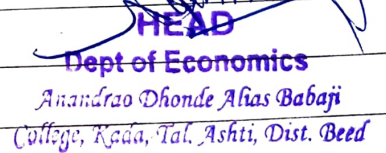 HEAD
Dept of Economics
Anandrao Dhonde Alias Babaji
College, Kada, Tal. Ashti, Dist. Beed